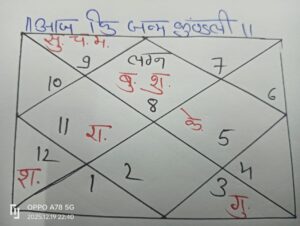 ॥आज कि जन्म कुंडली॥
सु. च. म.
9
लग्न
7
बु. शु.
10
6
8
11
रा.
के.
5
12
श.
1
2
3
4
गु.
OPPO A78 5G
2025.12.19 22:40